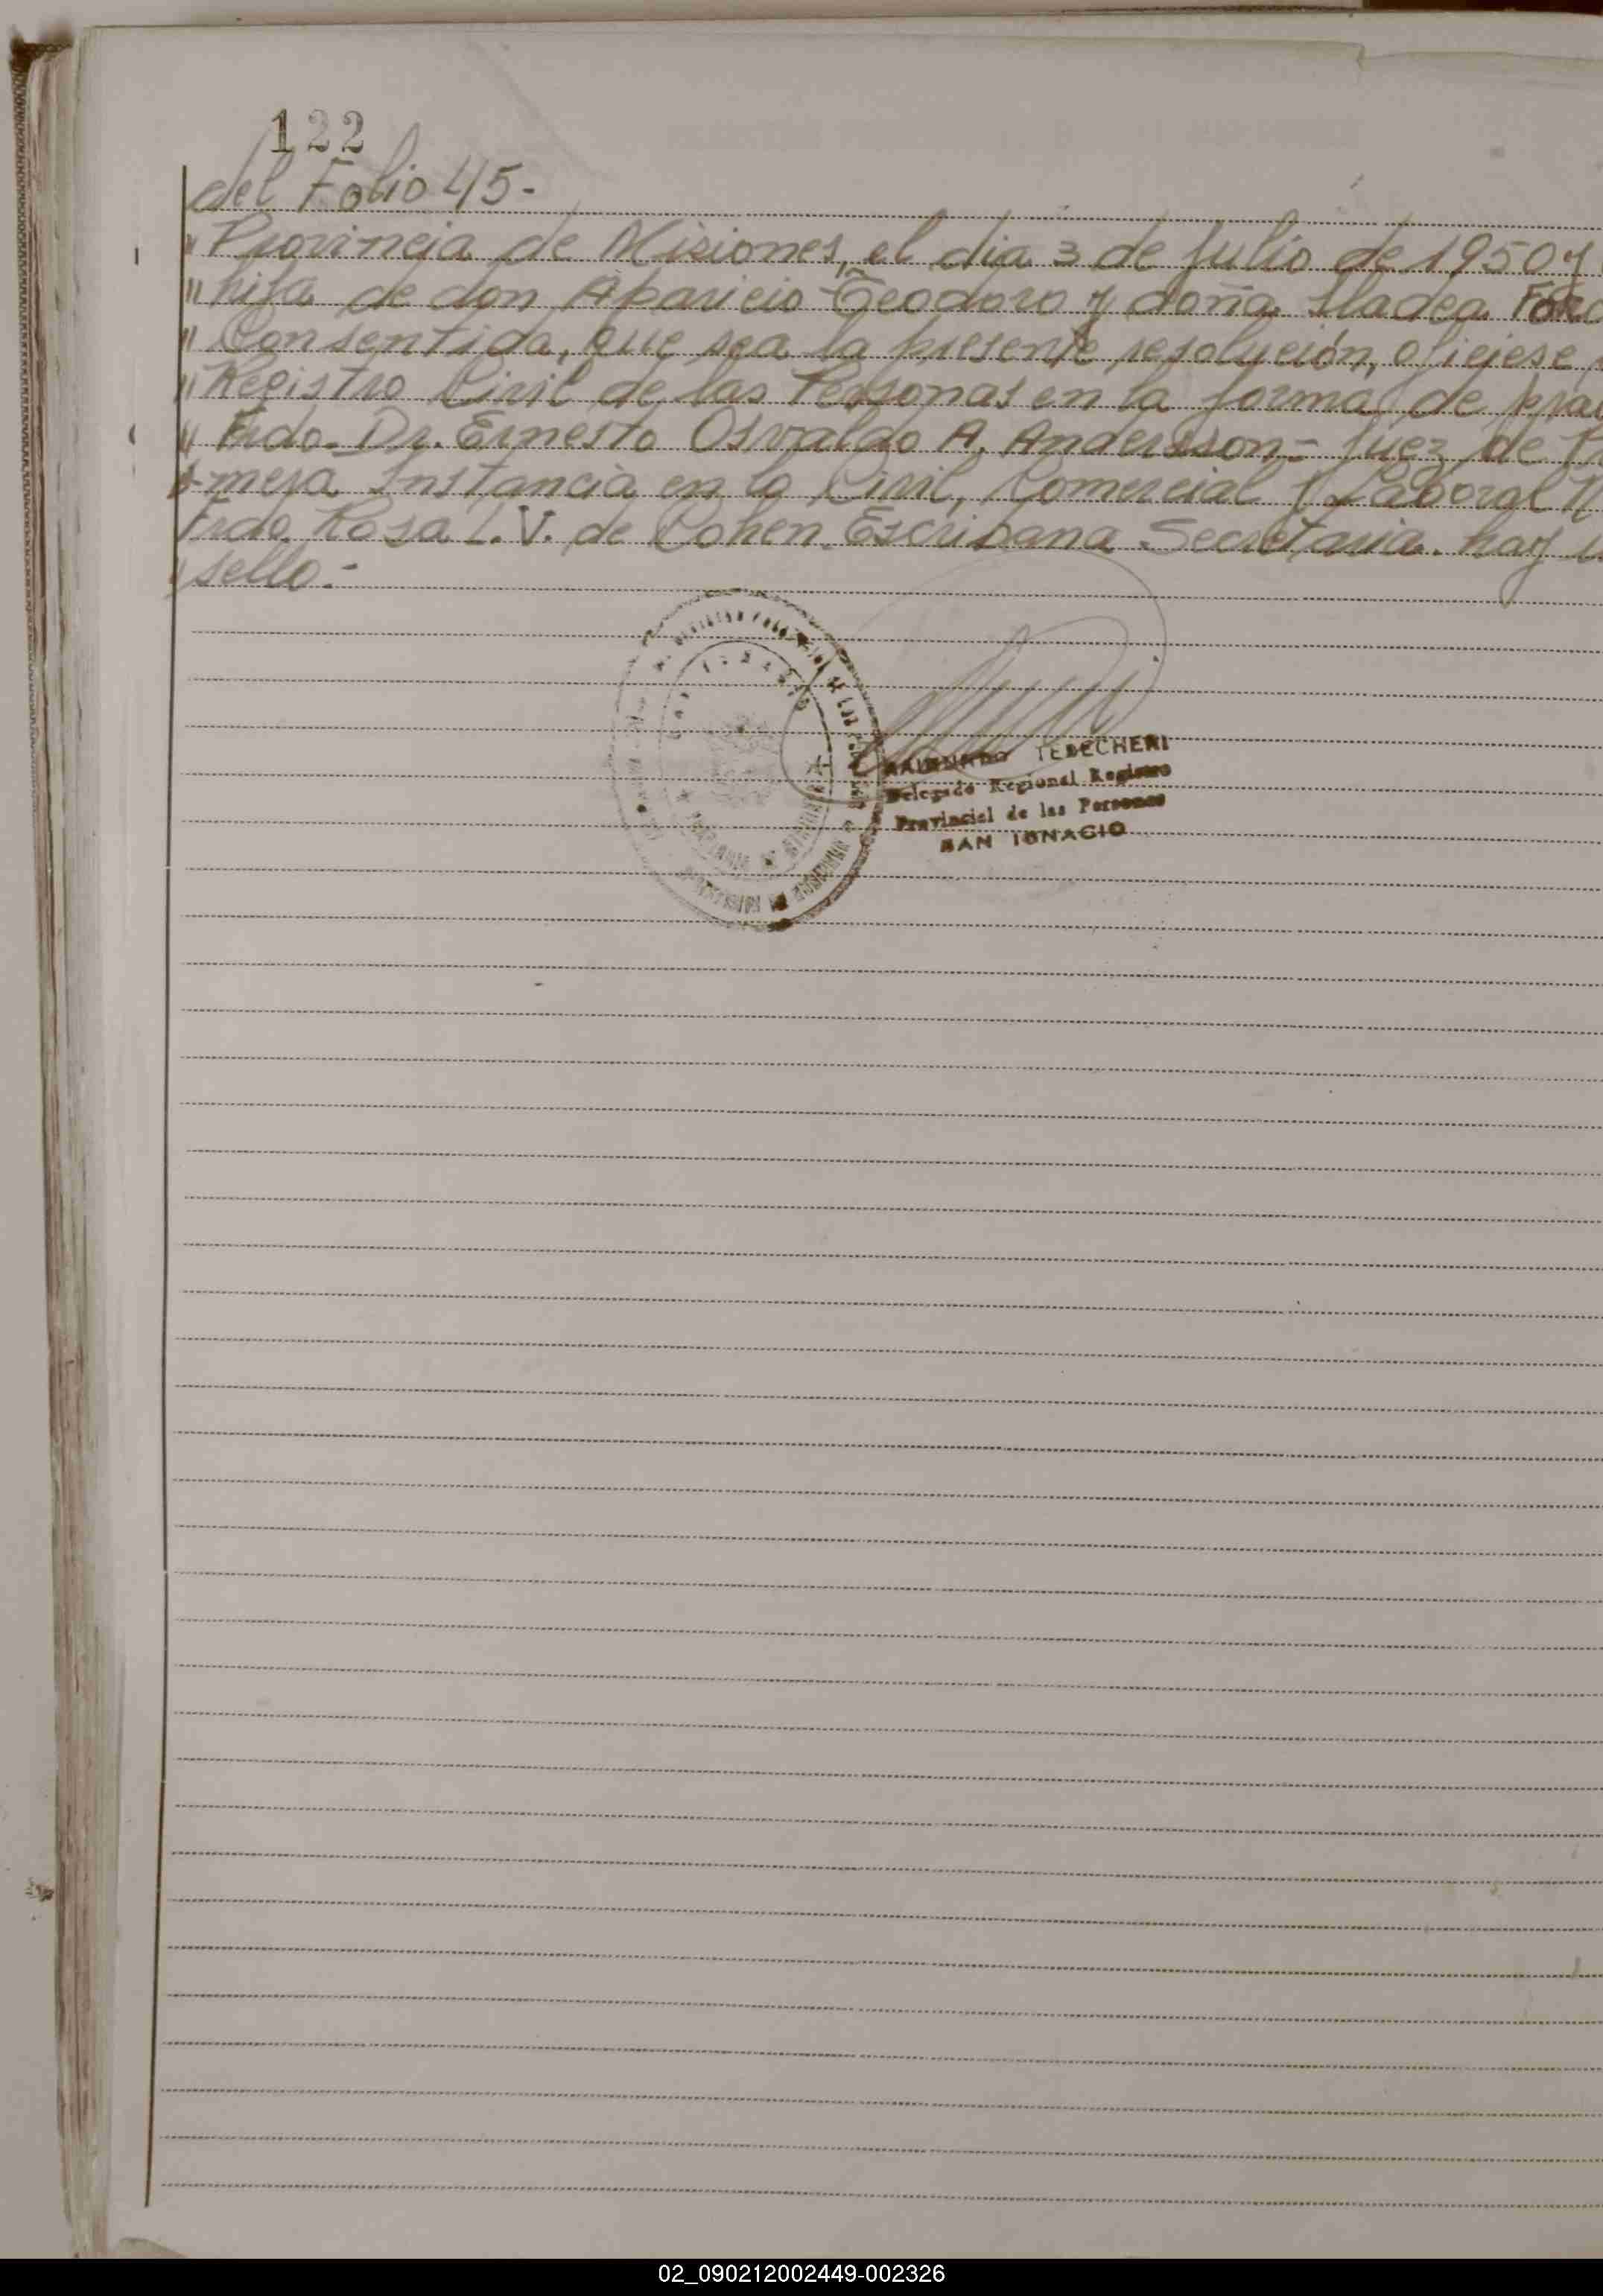 122
del Folio 45-
" Provincia de Misiones, el dia 3 de Julio de 1950 y
" hija de don Aparicio Teodoro y doña Eladea
" Consentida, que sea la presente resolución, ofíciese,
" Registro Civil de las Personas en la forma de
" Frdo. Dr. Ernesto Osvaldo A. Andersson - Juez de
mera Instancia en lo Civil, Comercial y Laboral
Frdo. Rosa L. V. de Cohen. Escribana Secretaria. hay
" sello.-
RAIMUNDO TEDECHERI
Delegado Regional Registro
Provincial de las Personas
SAN IGNACIO
02_090212002449-002326